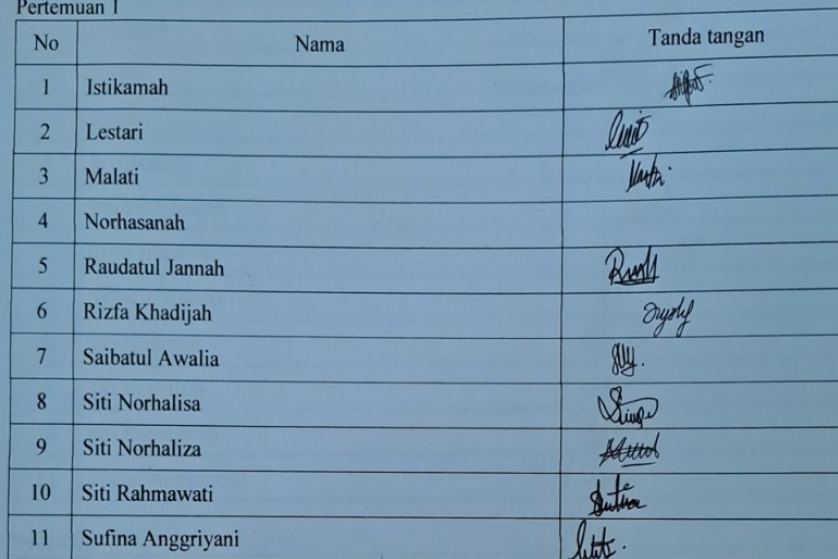 Pertemuan 1
No Nama Tanda tangan
1 Istikamah
2 Lestari
3 Malati
4 Norhasanah
5 Raudatul Jannah
6 Rizfa Khadijah
7 Saibatul Awalia
8 Siti Norhalisa
9 Siti Norhaliza
10 Siti Rahmawati
11 Sufina Anggriyani